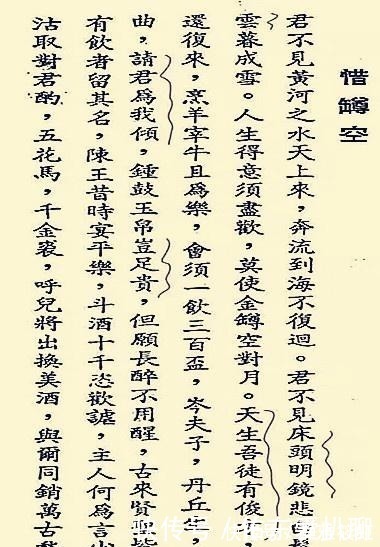 惜罇空
君不見黃河之水天上來，奔流到海不復迴。君不見床頭明鏡悲
雲暮成雪。人生得意須盡歡，莫使金罇空對月。天生吾徒有俊
還復來，烹羊宰牛且爲樂，會須一飲三百盃，岑夫子，丹丘生
曲，請君爲我傾，鍾鼓玉帛豈足貴，但願長醉不用醒，古來賢
有飲者留其名，陳王昔時宴平樂，斗酒十千恣歡謔，主人何爲言
沽取對君酌，五花馬，千金裘，呼兒將出換美酒，與爾同銷萬古